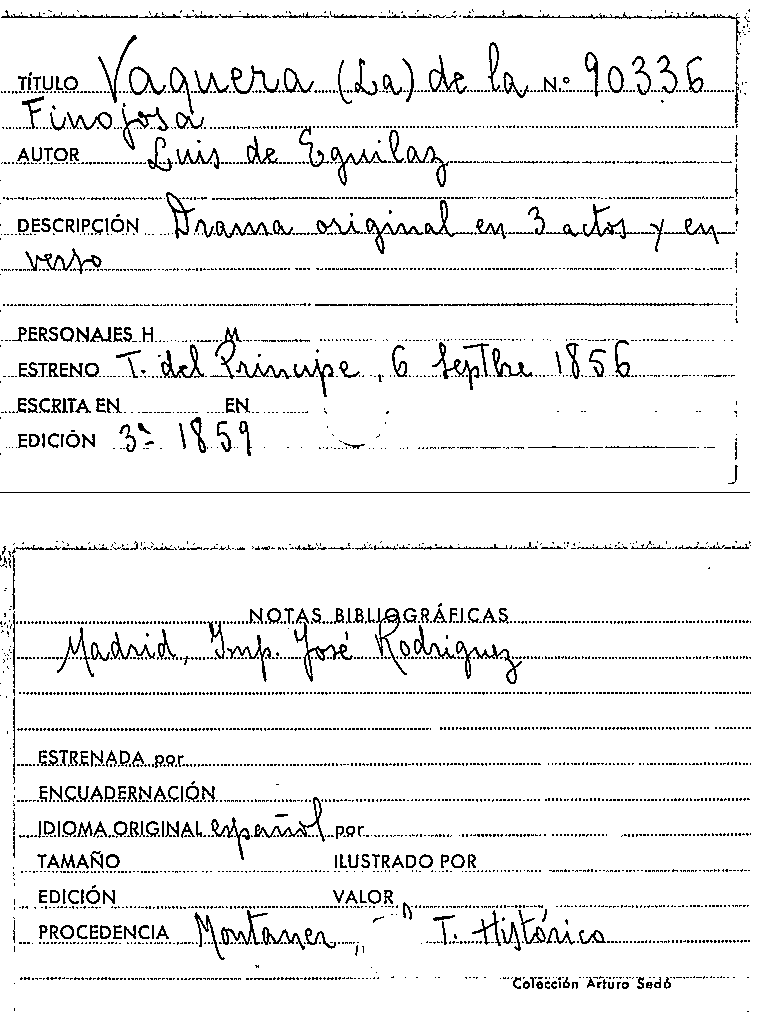 TÍTULO Vaquera (La) de la Nº 90336
Finojosa
AUTOR Luis de Eguilaz
DESCRIPCIÓN Drama original en 3 actos y en
verso
PERSONAJES H M
ESTRENO T. del Principe, 6 Septbre 1856
ESCRITA EN EN
EDICIÓN 3ª 1859
NOTAS BIBLIOGRÁFICAS
Madrid, Imp. José Rodriguez
ESTRENADA por
ENCUADERNACIÓN
IDIOMA ORIGINAL español por
TAMAÑO ILUSTRADO POR
EDICIÓN VALOR
PROCEDENCIA Montaner, T. Histórico
Colección Arturo Sedó